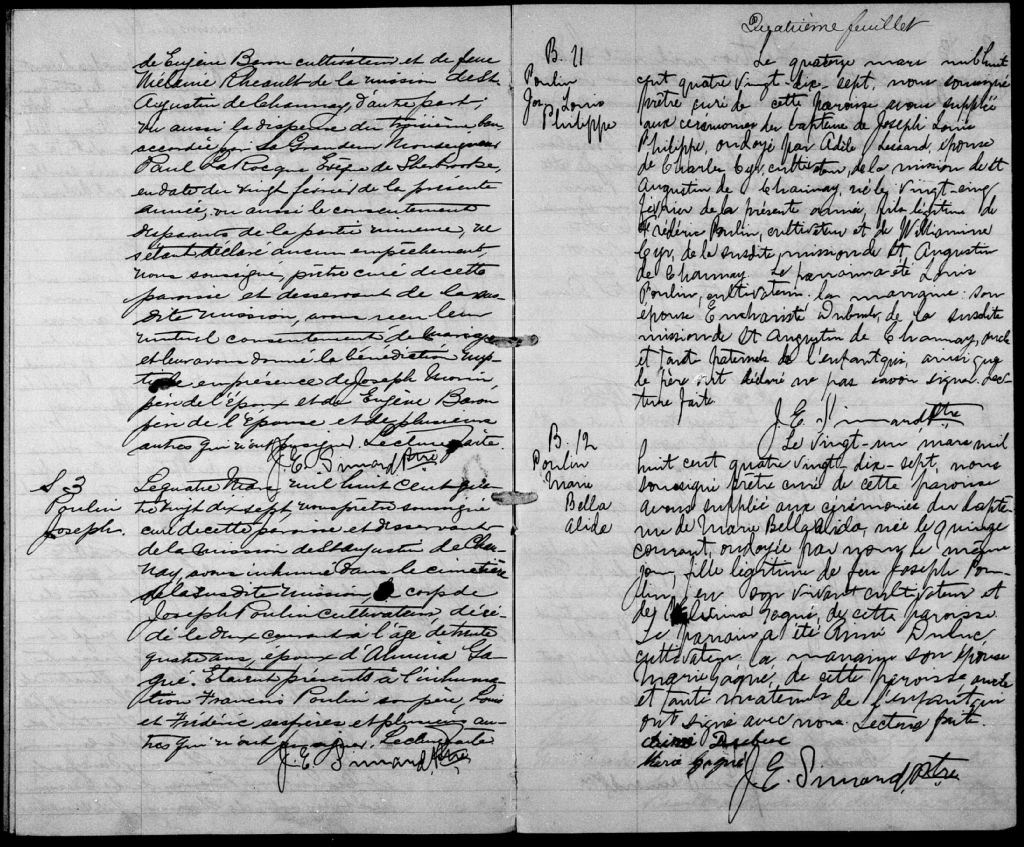 de Eugène Baron cultivateur et de feue
Mélanie Rheault de la mission de St
Augustin de Channay, d'autre part;
vu aussi la dispense du troisième ban
accordée par Sa Grandeur Monseigneur
Paul LaRocque Evêque de Sherbrooke,
en date du vingt fevrier de la présente
année, vu aussi le consentement
des parents de la partie mineure, ne
s'étant déclaré aucun empêchement,
nous soussigné, prêtre curé de cette
paroisse et desservant de la sus
dite mission, avons reçu leur
mutuel consentement de mariage
et leur avons donné la bénédiction nup-
tiale en présence de Joseph Morin,
père de l'Epoux et de Eugène Baron
père de l'Epouse et de plusieurs
autres qui n'ont pu signer. Lecture faite.
J. E. Simard Ptre
S 3
Poulin
Joseph.
Le quatre Mars mil huit cent qua-
tre vingt dix sept, nous prêtre soussigné
curé de cette paroisse et desservant
de la mission de St Augustin de Chan-
nay, avons inhumé dans le cimetière
de la susdite mission, le corps de
Joseph Poulin cultivateur, décé-
dé le deux courant à l'âge de trente
quatre ans, époux d'Almina Ga-
gné. Etaient présents à l'inhuma-
tion Francois Poulin son père, Louis
et Frédéric ses frères et plusieurs au-
tres qui n'ont pu signer. Lecture faite
J. E. Simard, Ptre
Quatrième feuillet
B. 11
Poulin
Jos. Louis
Philippe
Le quatorze mars mil huit
cent quatre vingt dix-sept, nous soussigné
prêtre curé de cette paroisse avons suppléé
aux cérémonies du baptême de Joseph Louis
Philippe, ondoyé par Adèle Lessard, épouse
de Charles Cyr, cultivateur, de la mission de St
Augustin de Channay, né le vingt-cinq
février de la présente année, fils légitime de
Frédéric Poulin, cultivateur et de Williamine
Cyr, de la susdite mission de St Augustin
de Channay. Le parrain a été Louis
Poulin, cultivateur. la marraine: son
épouse Euchariste, de la susdite
mission de St Augustin de Channay, oncle
et tante paternels de l'enfant qui, ainsi que
le père ont déclaré ne pas savoir signer. Lec-
ture faite
J. E. Simard Ptre
B. 12
Poulin
Marie
Bella
Alida
Le vingt-un mars mil
huit cent quatre vingt-dix-sept, nous
soussigné prêtre curé de cette paroisse
avons suppléé aux cérémonies du baptê-
me de Marie Bella Alida, née le quinze
courant, ondoyée par nous le même
jour, fille légitime de feu Joseph Pou-
lin, en son vivant cultivateur et
de Gagné, de cette paroisse.
Le parrain a été Aimé Dubuc,
cultivateur la marraine son épouse
Marie Gagné, de cette paroisse oncle
et tante maternels de l'enfant qui
ont signé avec nous. Lecture faite.
Aimé Dubuc
Marie Gagné
J. E. Simard, Ptre